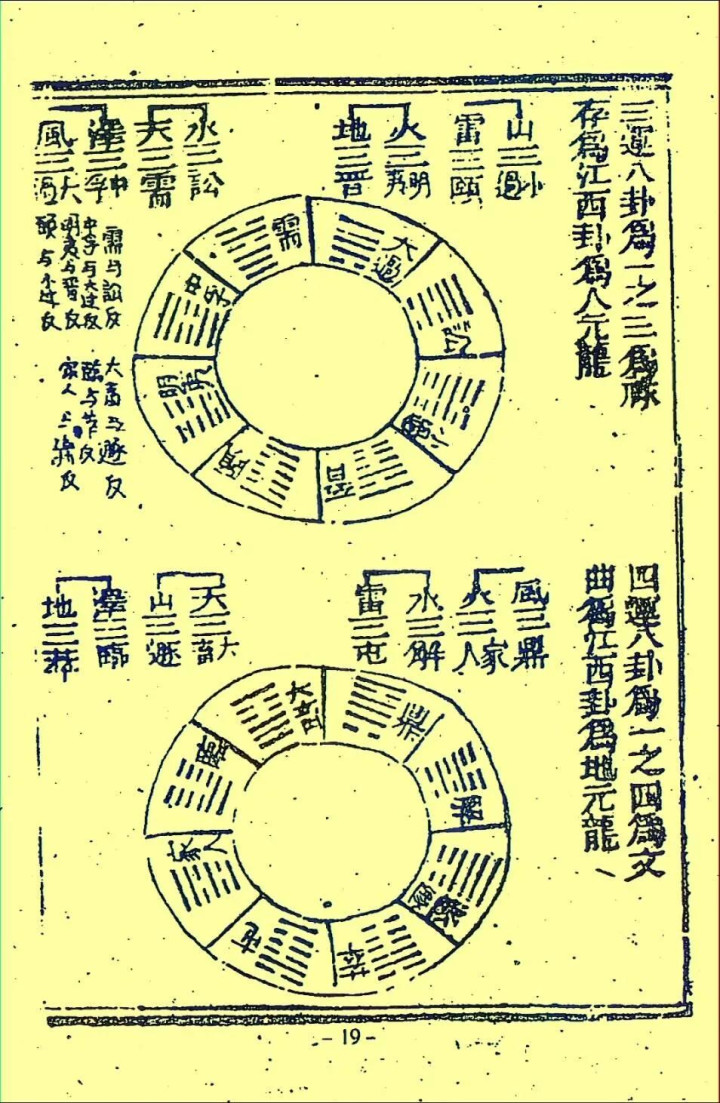 三運八卦爲一之三爲祿
存爲江西卦爲人元龍
山三小過
雷三頤
火三明夷
地三晉
水三訟
天三需
澤三中孚
風三大過
需与訟反
中孚与大过反
明夷与晋反
頤与小过反
大畜与遯反
臨与萃反
家人与
反
大過
訟
晉
頤
明夷
中孚
需
四運八卦爲一之四爲文
曲爲江西卦爲地元龍
風三鼎
火三家人
水三解
雷三屯
天三大畜
山三遯
澤三臨
地三萃
鼎
解
遯
萃
屯
家人
臨
大畜
- 19 -